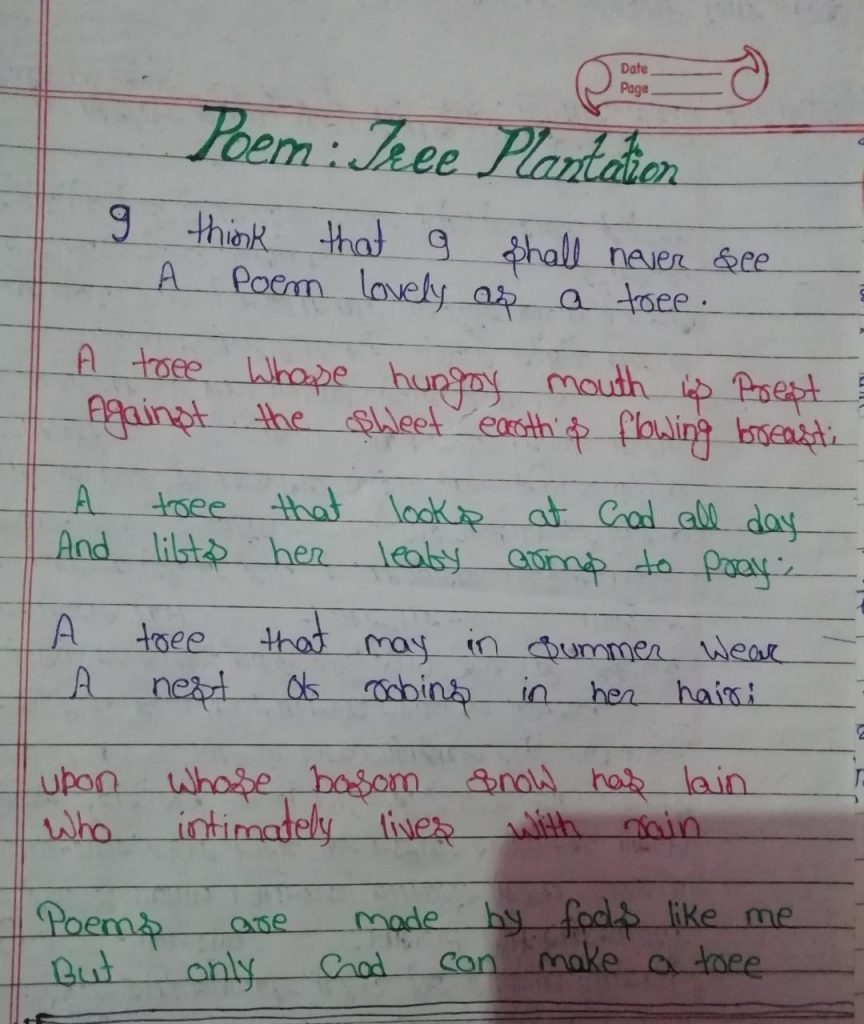 Date
Page
Poem: Tree Plantation
I think that I shall never see
A Poem lovely as a tree.
A tree whose hungry mouth is Prest
Against the sweet earth's flowing breast;
A tree that looks at God all day
And lifts her leafy arms to Pray;
A tree that may in summer wear
A nest of robins in her hair;
upon whose bosom snow has lain
Who intimately lives with rain
Poems are made by fools like me
But only God can make a tree